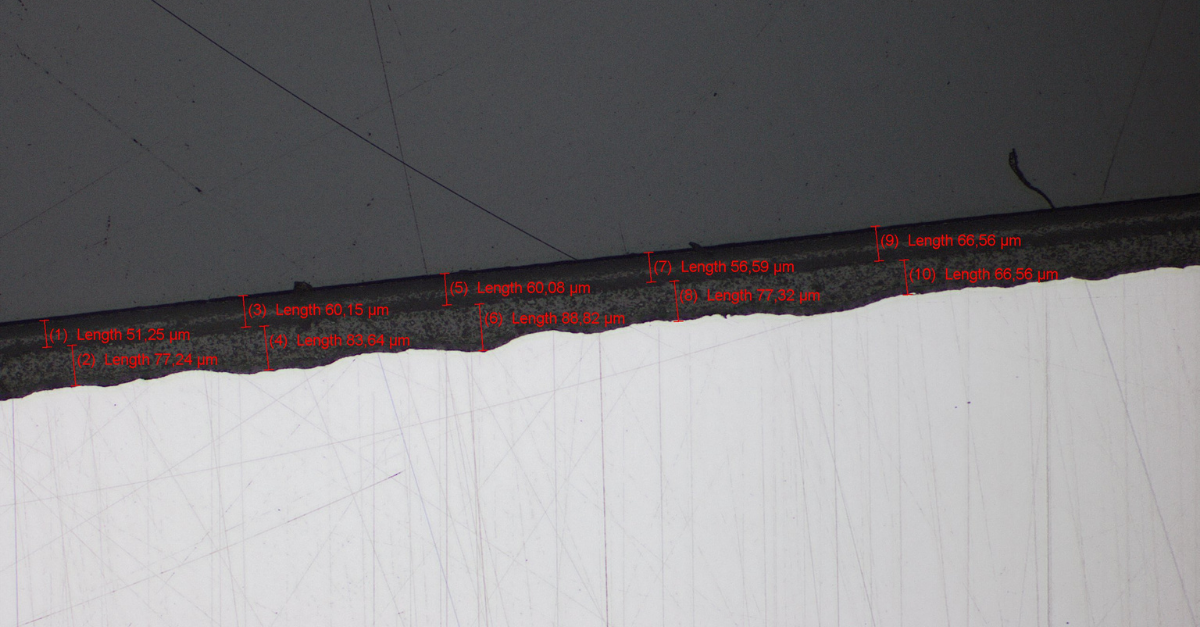 (1) Length 51,25 µm
(2) Length 77,24 µm
(3) Length 60,15 µm
(4) Length 83,64 µm
(5) Length 60,08 µm
(6) Length 88,82 µm
(7) Length 56,59 µm
(8) Length 77,32 µm
(9) Length 66,56 µm
(10) Length 66,56 µm